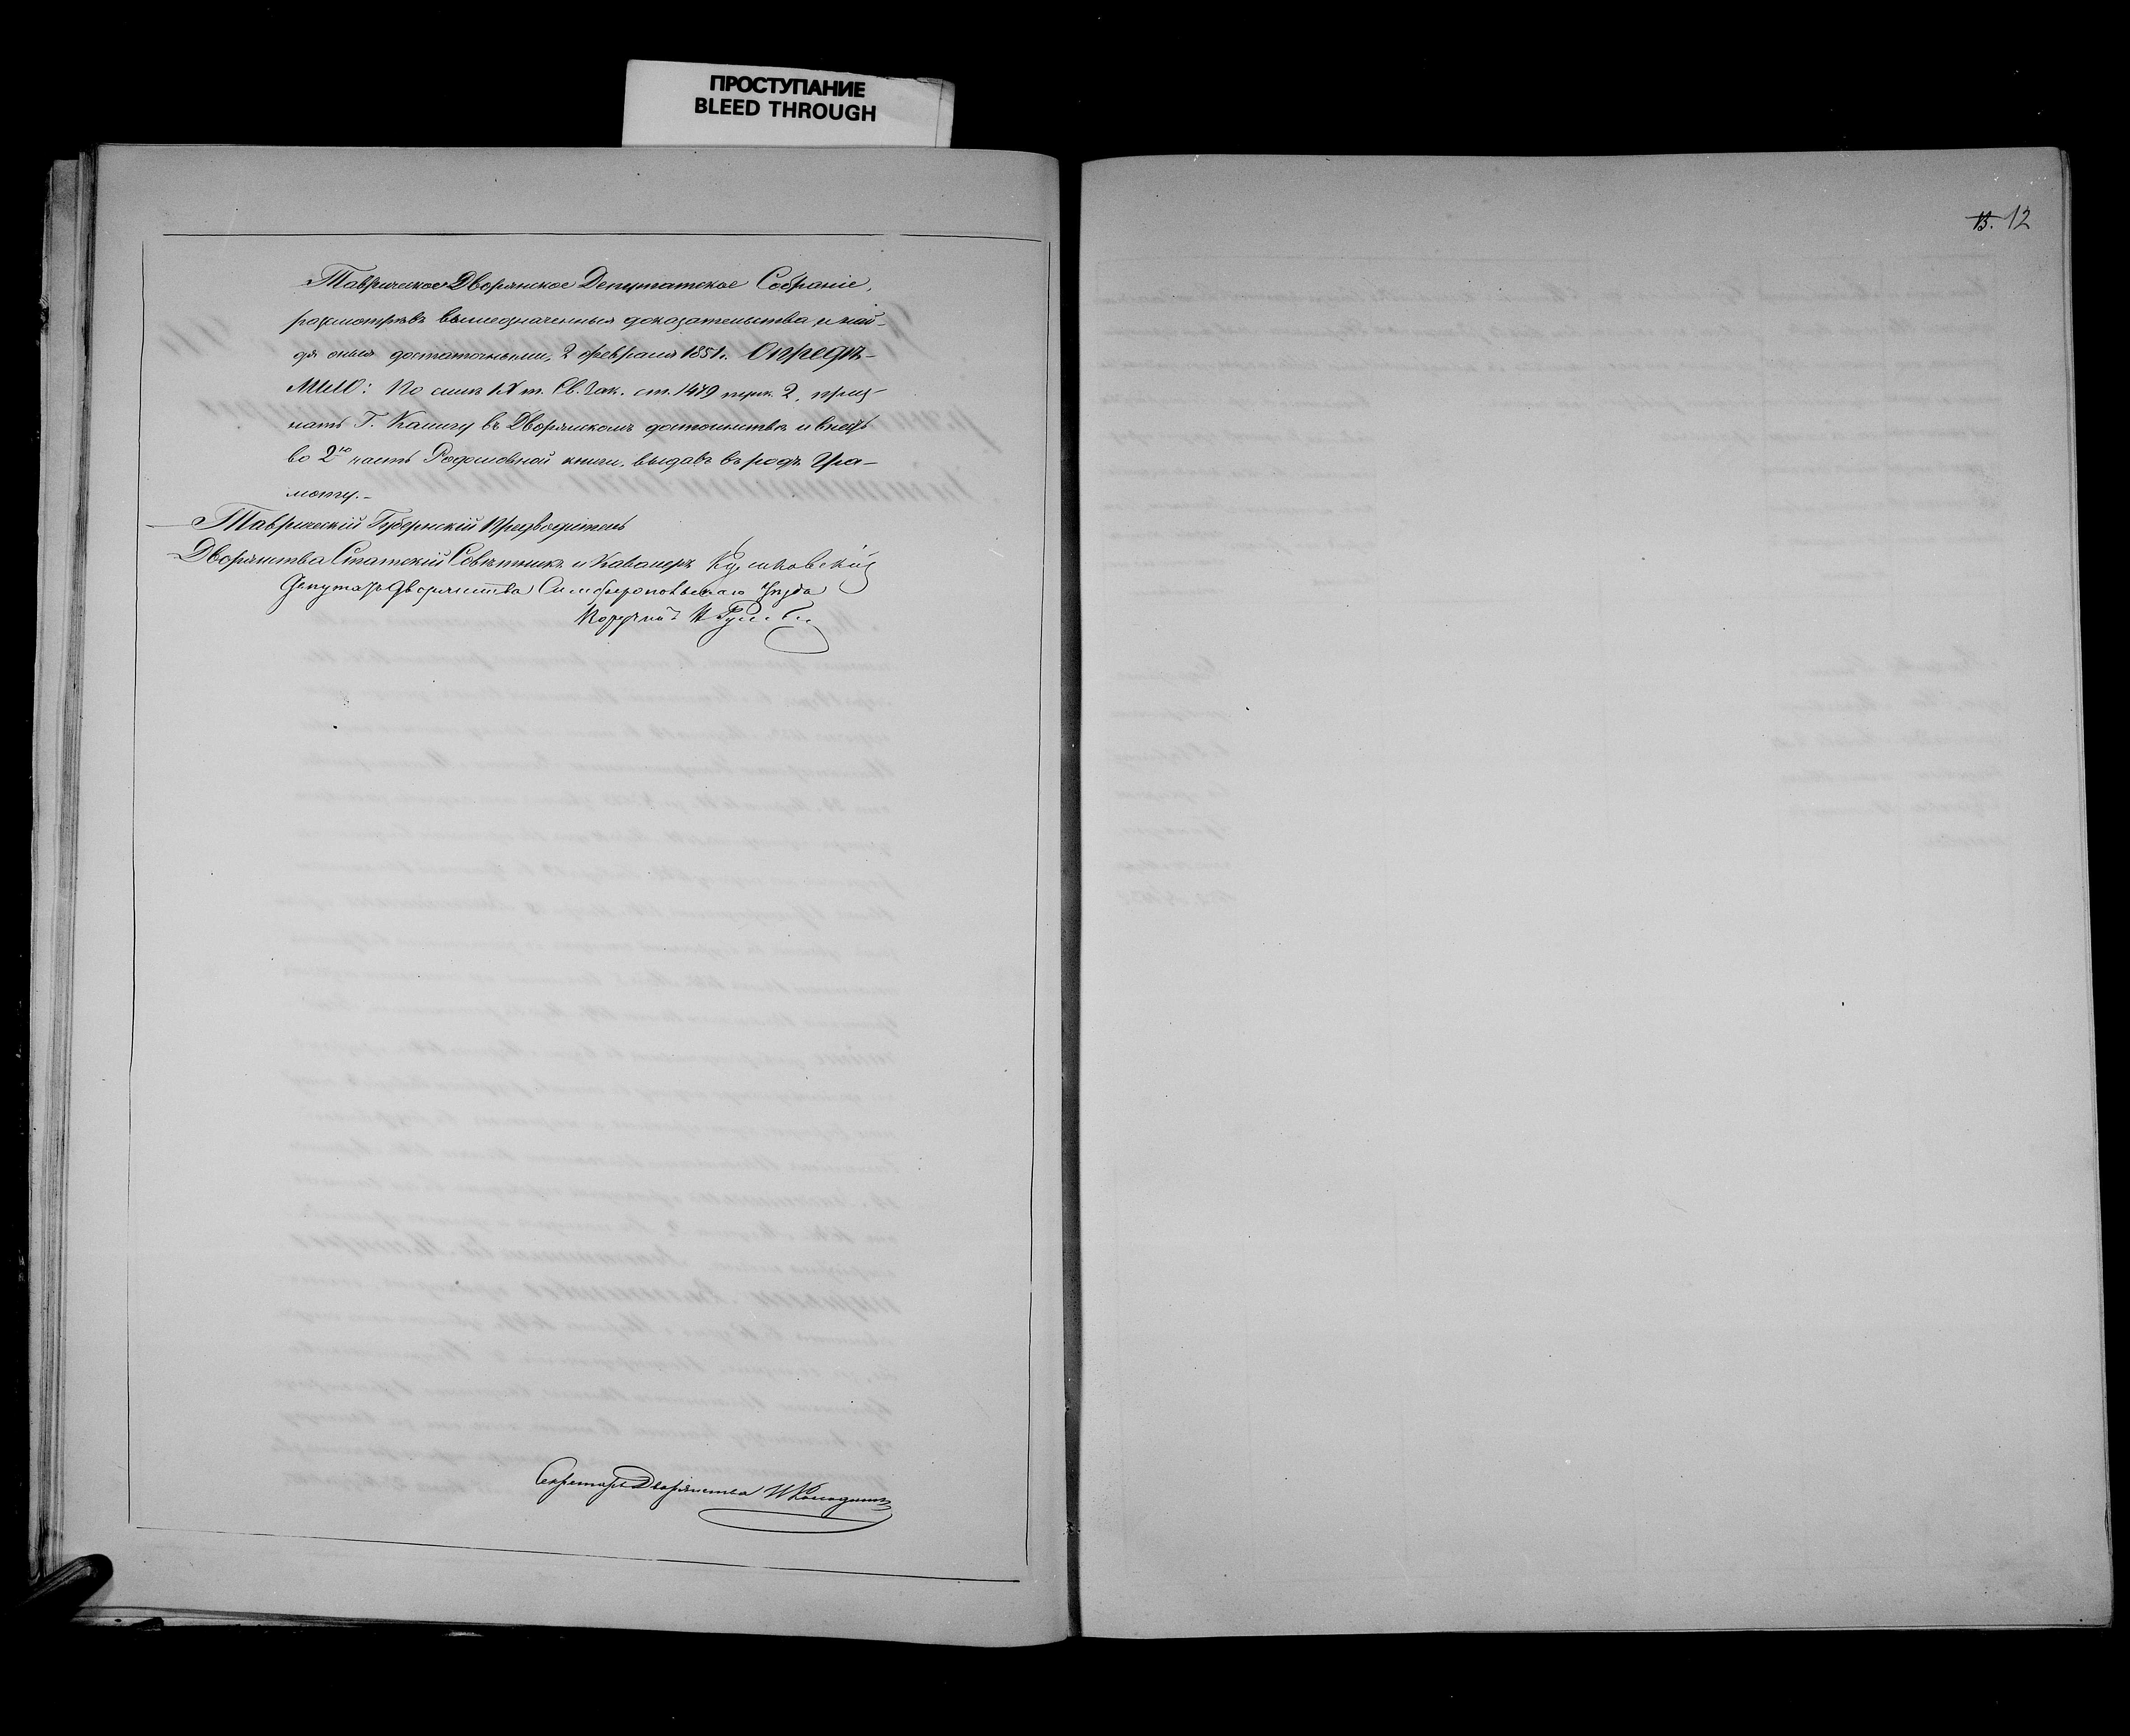 ПРОСТУПАНИЕ
BLEED THROUGH
13. 12
Таврическое Дворянское Депутатское Собраніе,
разсмотрѣвъ вышеозначенныя доказательства и най-
дя оныя достаточными, 2 февраля 1851 г. Опредѣ-
лило: По силѣ IX т. Св. Зак. ст. 1479 прим. 2, приз-
нать Г. Качигу въ Дворянскомъ достоинствѣ и внесть
во 2ю часть Родословной книги, выдавъ въ родъ Гра-
моту.-
Таврическій Губернскій Предводитель
Дворянства Статскій Совѣтникъ и Кавалеръ
Депутатъ Дворянства Симферопольскаго Уѣзда
Секретарь Дворянства